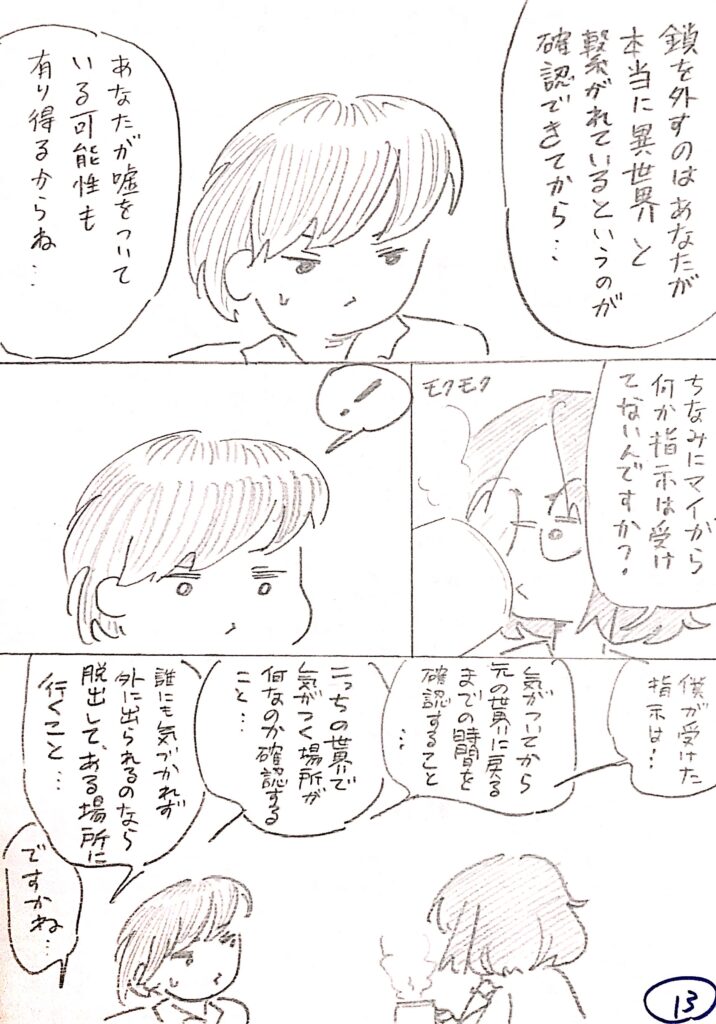 鎖を外すのはあなたが
本当に異世界と
繋がれているというのが
確認できてから…
あなたが嘘をついて
いる可能性も
有り得るからね…
ちなみにマイから
何か指示は受け
てないんですか?
モクモク
!
僕が受けた
指示は…
気がついてから
元の世界に戻る
までの時間を
確認すること
…
こっちの世界で
気がつく場所が
何なのか確認する
こと…
誰にも気づかれず
外に出られるのなら
脱出して、ある場所に
行くこと…
ですかね…
13